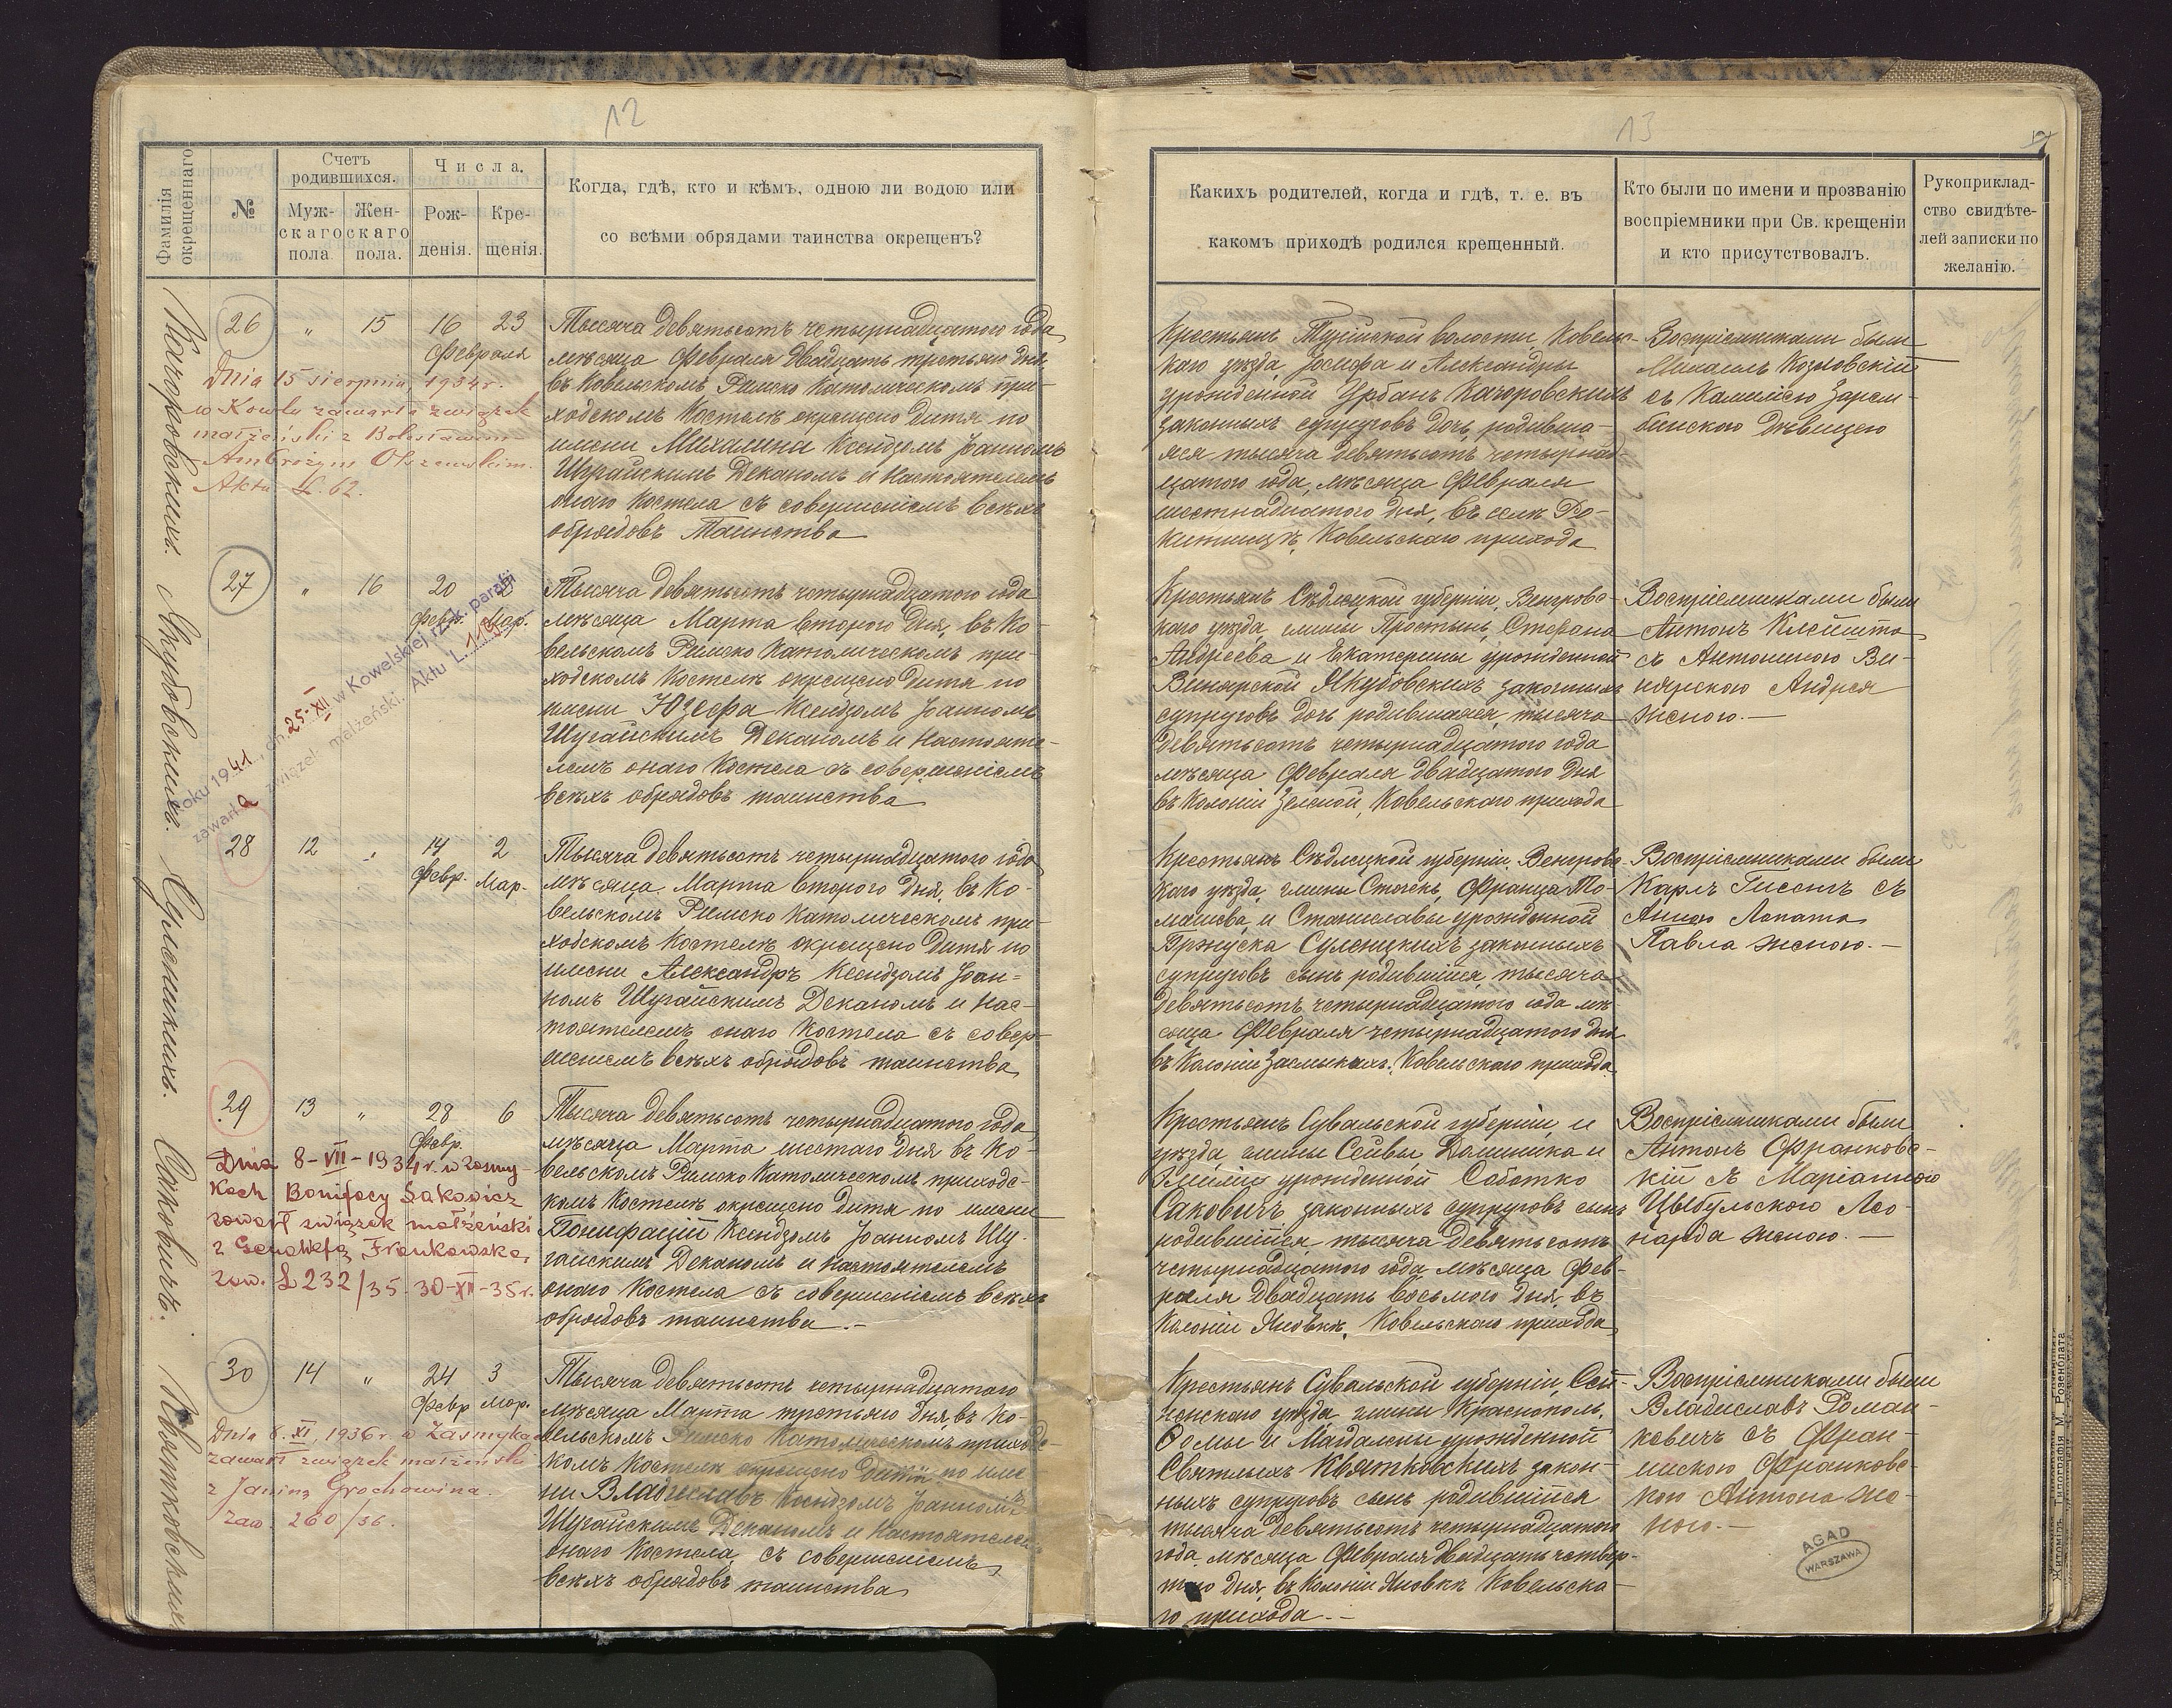 12
Фамилія окрещеннаго
№
Счетъ родившихся.
Мужскаго пола
Женскаго пола.
Числа.
Рожденія.
Крещенія.
Когда, гдѣ, кто и кѣмъ, одною ли водою или
со всѣми обрядами таинства окрещенъ?
Качоровскихъ.
26
"
15
16
23
Февраля
Тысяча девятьсотъ четырнадцатого года
мѣсяца Февраля двадцать третьяго дня
въ Ковельскомъ Римско Католическомъ при-
ходскомъ Костелѣ окрещено дитя по
имени Михалина Ксендзомъ Іоанномъ
Шугайскимъ Деканомъ и Настоятелемъ
онаго Костела съ совершеніемъ всѣхъ
обрядовъ Таинства
Dnia 15 sierpnia 1934 r.
w Kowlu zawarła związek
małżeński z Bolesławem
Ambrożym
Aktu L. 62.
Якубовскихъ.
27
"
16
20
2
Февр.
Мар.
Тысяча девятьсотъ четырнадцатого года
мѣсяца Марта второго дня, въ Ко-
вельскомъ Римско Католическомъ при-
ходскомъ Костелѣ окрещено дитя по
имени Юзефа Ксендзомъ Іоанномъ
Шугайскимъ Деканомъ и Настояте-
лемъ онаго Костела съ совершеніемъ
всѣхъ обрядовъ таинства
Roku 1941, dn. 25-XII w Kowelskiej rz.-k. parafji
zawarła związek małżeński. Aktu L.
28
12
"
14
2
Февр.
Мар.
Тысяча девятьсотъ четырнадцатого года
мѣсяца Марта второго дня, въ Ко-
вельскомъ Римско Католическомъ при-
ходскомъ Костелѣ окрещено дитя по
имени Александръ Ксендзомъ Іоан-
номъ Шугайскимъ Деканомъ и Нас-
тоятелемъ онаго Костела съ совер-
шеніемъ всѣхъ обрядовъ таинства
Саковичъ.
29
13
"
28
6
Февр.
Тысяча девятьсотъ четырнадцатого года
мѣсяца Марта шестаго дня въ Ко-
вельскомъ Римско Католическомъ приходс-
комъ Костелѣ окрещено дитя по имени
Бонифацій Ксендзомъ Іоанномъ Шу-
гайскимъ Деканомъ и Настоятелемъ
онаго Костела съ совершеніемъ всѣхъ
обрядовъ таинства.-
Dnia 8-VII-1934 r. w Zasmy-
kach Bonifacy Sakowicz
zawarł związek małżeński
z Genowefą Frankowską,
zaw. L 232/35 30-XII-35 r.
Квятковскихъ
30
14
"
24
3
Февр
Мар.
Тысяча девятьсотъ четырнадцатаго
мѣсяца Марта третьяго дня, въ Ко-
вельскомъ Римско Католическомъ приходс-
комъ Костелѣ окрещено дитя по име
ни Владиславъ Ксендзомъ Іоанномъ
Шугайскимъ Деканомъ и Настоятелемъ
онаго Костела съ совершеніемъ
всѣхъ обрядовъ таинства
Dnia 6. XI. 1936 r. w Zasmykach
zawarł związek małżeński
z Janiną Grochowina.
zaw. 260/36.
13
Какихъ родителей, когда и гдѣ, т. е. въ
какомъ приходѣ родился крещенный.
Кто были по имени и прозванію
воспріемники при Св. крещеніи
и кто присутствовалъ.
Рукоприклад-
ство свидѣте-
лей записки по
желанію.
Крестьянъ Турійской волости, Ковельс-
каго уѣзда, Іосифа и Александры
урожденной Урбанъ Качоровскихъ
законныхъ супруговъ дочь, родивша-
яся тысяча девятьсотъ четырнад-
цатого года, мѣсяца Февраля
шестнадцатого дня, въ селѣ Ро-
китницѣ, Ковельскаго прихода
Воспріемниками были
Михаилъ Козловскій
съ Камилею Зарем-
бинскою Дѣвицею
Крестьянъ Сѣдлецкой губерніи, Венгровс-
каго уѣзда, гмины Простынь, Стефана
Андреева и Екатерины урожденной
Винярской Якубовскихъ законныхъ
супруговъ дочь родившаяся, тысяча
девятьсотъ четырнадцатого года
мѣсяца Февраля двадцатого дня
въ Колоніи Зеленой, Ковельскаго прихода
Воспріемниками были
Антонъ
съ Антониною Ви-
нярскою Андрея
женою.-
Крестьянъ Сѣдлецкой губерніи, Венгровс-
каго уѣзда, гмины Сточекъ, Франца То-
машева, и Станиславы урожденной
законныхъ
супруговъ сынъ родившійся, тысяча
девятьсотъ четырнадцатого года мѣ-
сяца Февраля четырнадцатого дня
въ Колоніи Засмыкахъ, Ковельскаго прихода.
Воспріемниками были
Карлъ съ
Анною Лопата
Павла женою.-
Крестьянъ Сувальской губерніи, и
уѣзда, гмины Сейвы, Доминика и
Эмиліи урожденной Соботко
Саковичъ законныхъ супруговъ сынъ
родившійся, тысяча девятьсотъ
четырнадцатого года мѣсяца Фев-
раля двадцать восьмого дня, въ
Колоніи Яновкѣ, Ковельскаго прихода
Воспріемниками были
Антонъ Франковс-
кій съ Маріанною
Цыбульскою Лео-
нарда женою.-
Крестьянъ Сувальской губерніи, Сей-
ненскаго уѣзда, гмины Краснополь,
Ѳомы и Магдалены урожденной
Квятковскихъ закон-
ныхъ супруговъ сынъ родившійся
тысяча девятьсотъ четырнадцатого
года, мѣсяца Февраля двадцать четвер-
таго дня, въ Колоніи Яновкѣ Ковельска-
го прихода.-
Воспріемниками были
Владиславъ Роман-
кевичъ съ Фран-
цишкою Франковс-
кою Антона же-
ною.-
AGAD
WARSZAWA